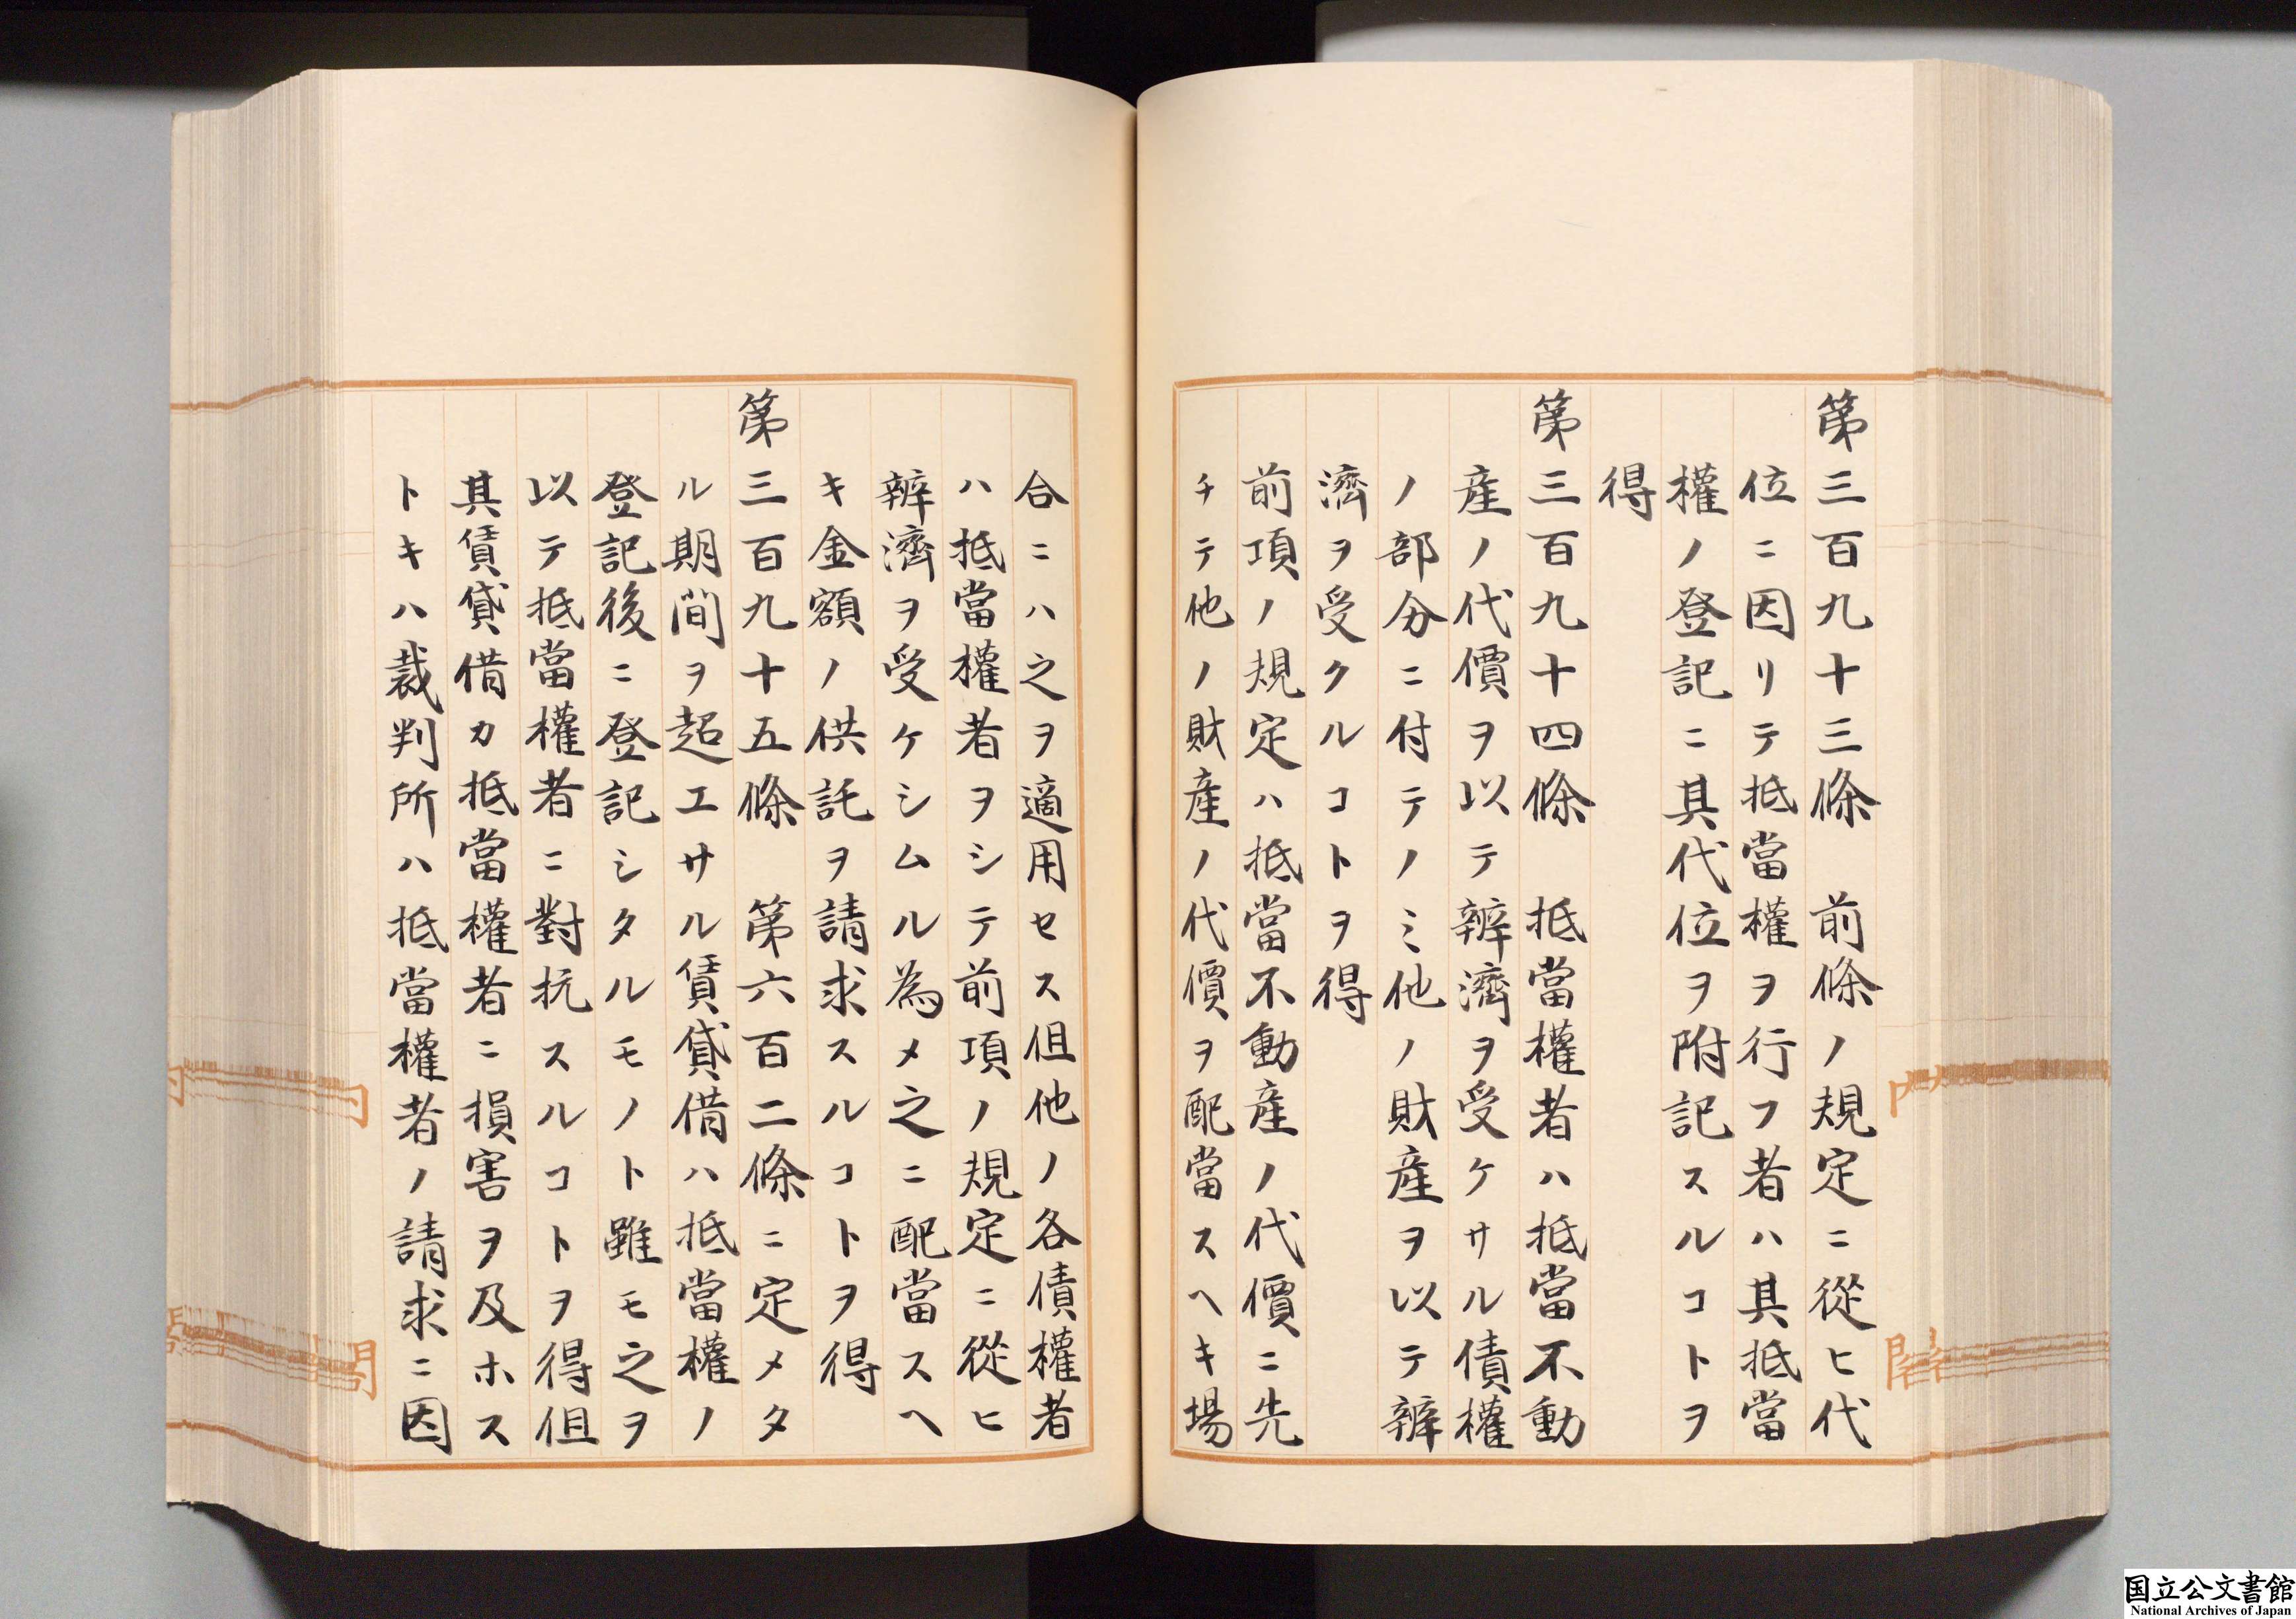 第三百九十三條　前條ノ規定ニ從ヒ代
位ニ因リテ抵當權ヲ行フ者ハ其抵當
權ノ登記ニ其代位ヲ附記スルコトヲ
得
第三百九十四條　抵當權者ハ抵當不動
產ノ代價ヲ以テ辨濟ヲ受ケサル債權
ノ部分ニ付テノミ他ノ財產ヲ以テ辨
濟ヲ受クルコトヲ得
前項ノ規定ハ抵當不動產ノ代價ニ先
チテ他ノ財產ノ代價ヲ配當スヘキ場
合ニハ之ヲ適用セス但他ノ各債權者
ハ抵當權者ヲシテ前項ノ規定ニ從ヒ
辨濟ヲ受ケシムル為メ之ニ配當スヘ
キ金額ノ供託ヲ請求スルコトヲ得
第三百九十五條　第六百二條ニ定メタ
ル期間ヲ超エサル賃貸借ハ抵當權ノ
登記後ニ登記シタルモノト雖モ之ヲ
以テ抵當權者ニ對抗スルコトヲ得但
其賃貸借カ抵當權者ニ損害ヲ及ホス
トキハ裁判所ハ抵當權者ノ請求ニ因
国立公文書館
National Archives of Japan